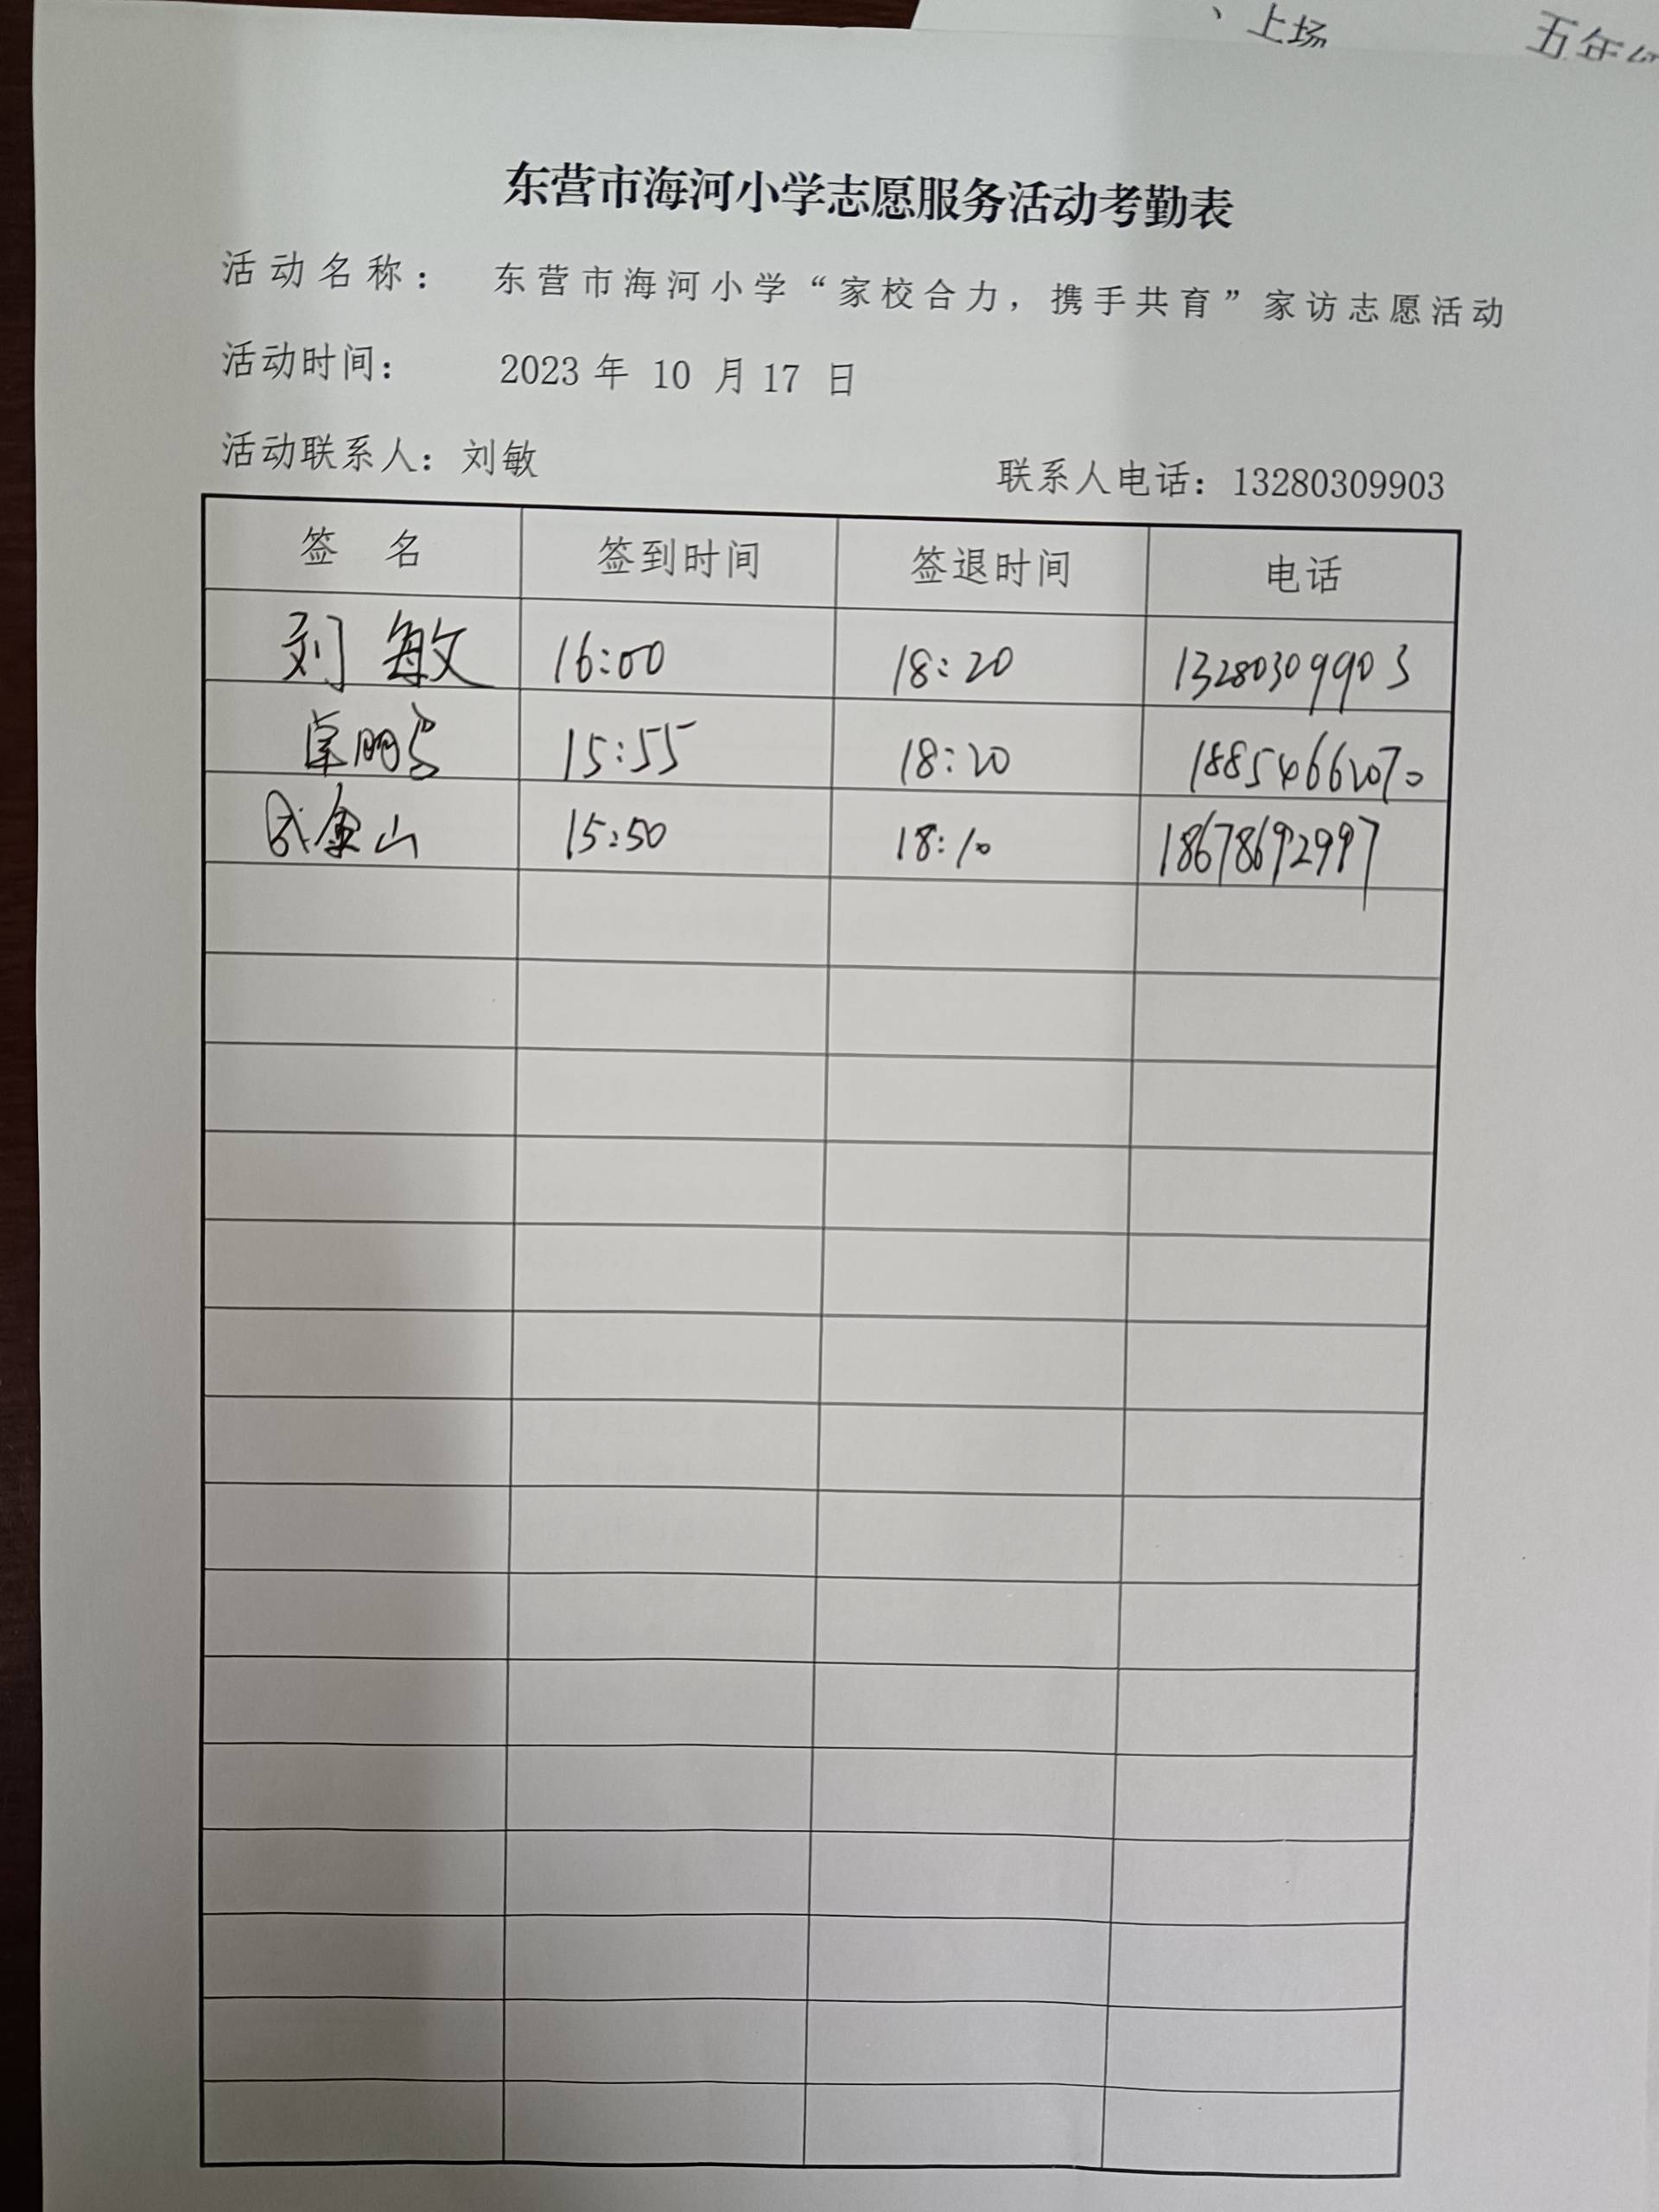 、上场 五年
东营市海河小学志愿服务活动考勤表
活动名称： 东营市海河小学“家校合力，携手共育”家访志愿活动
活动时间： 2023年 10 月17 日
活动联系人：刘敏 联系人电话：13280309903
签 名 签到时间 签退时间 电话
刘敏 16:00 18:20 13280309903
15:55 18:20 18854662070
山 15:50 18:10 18678692997